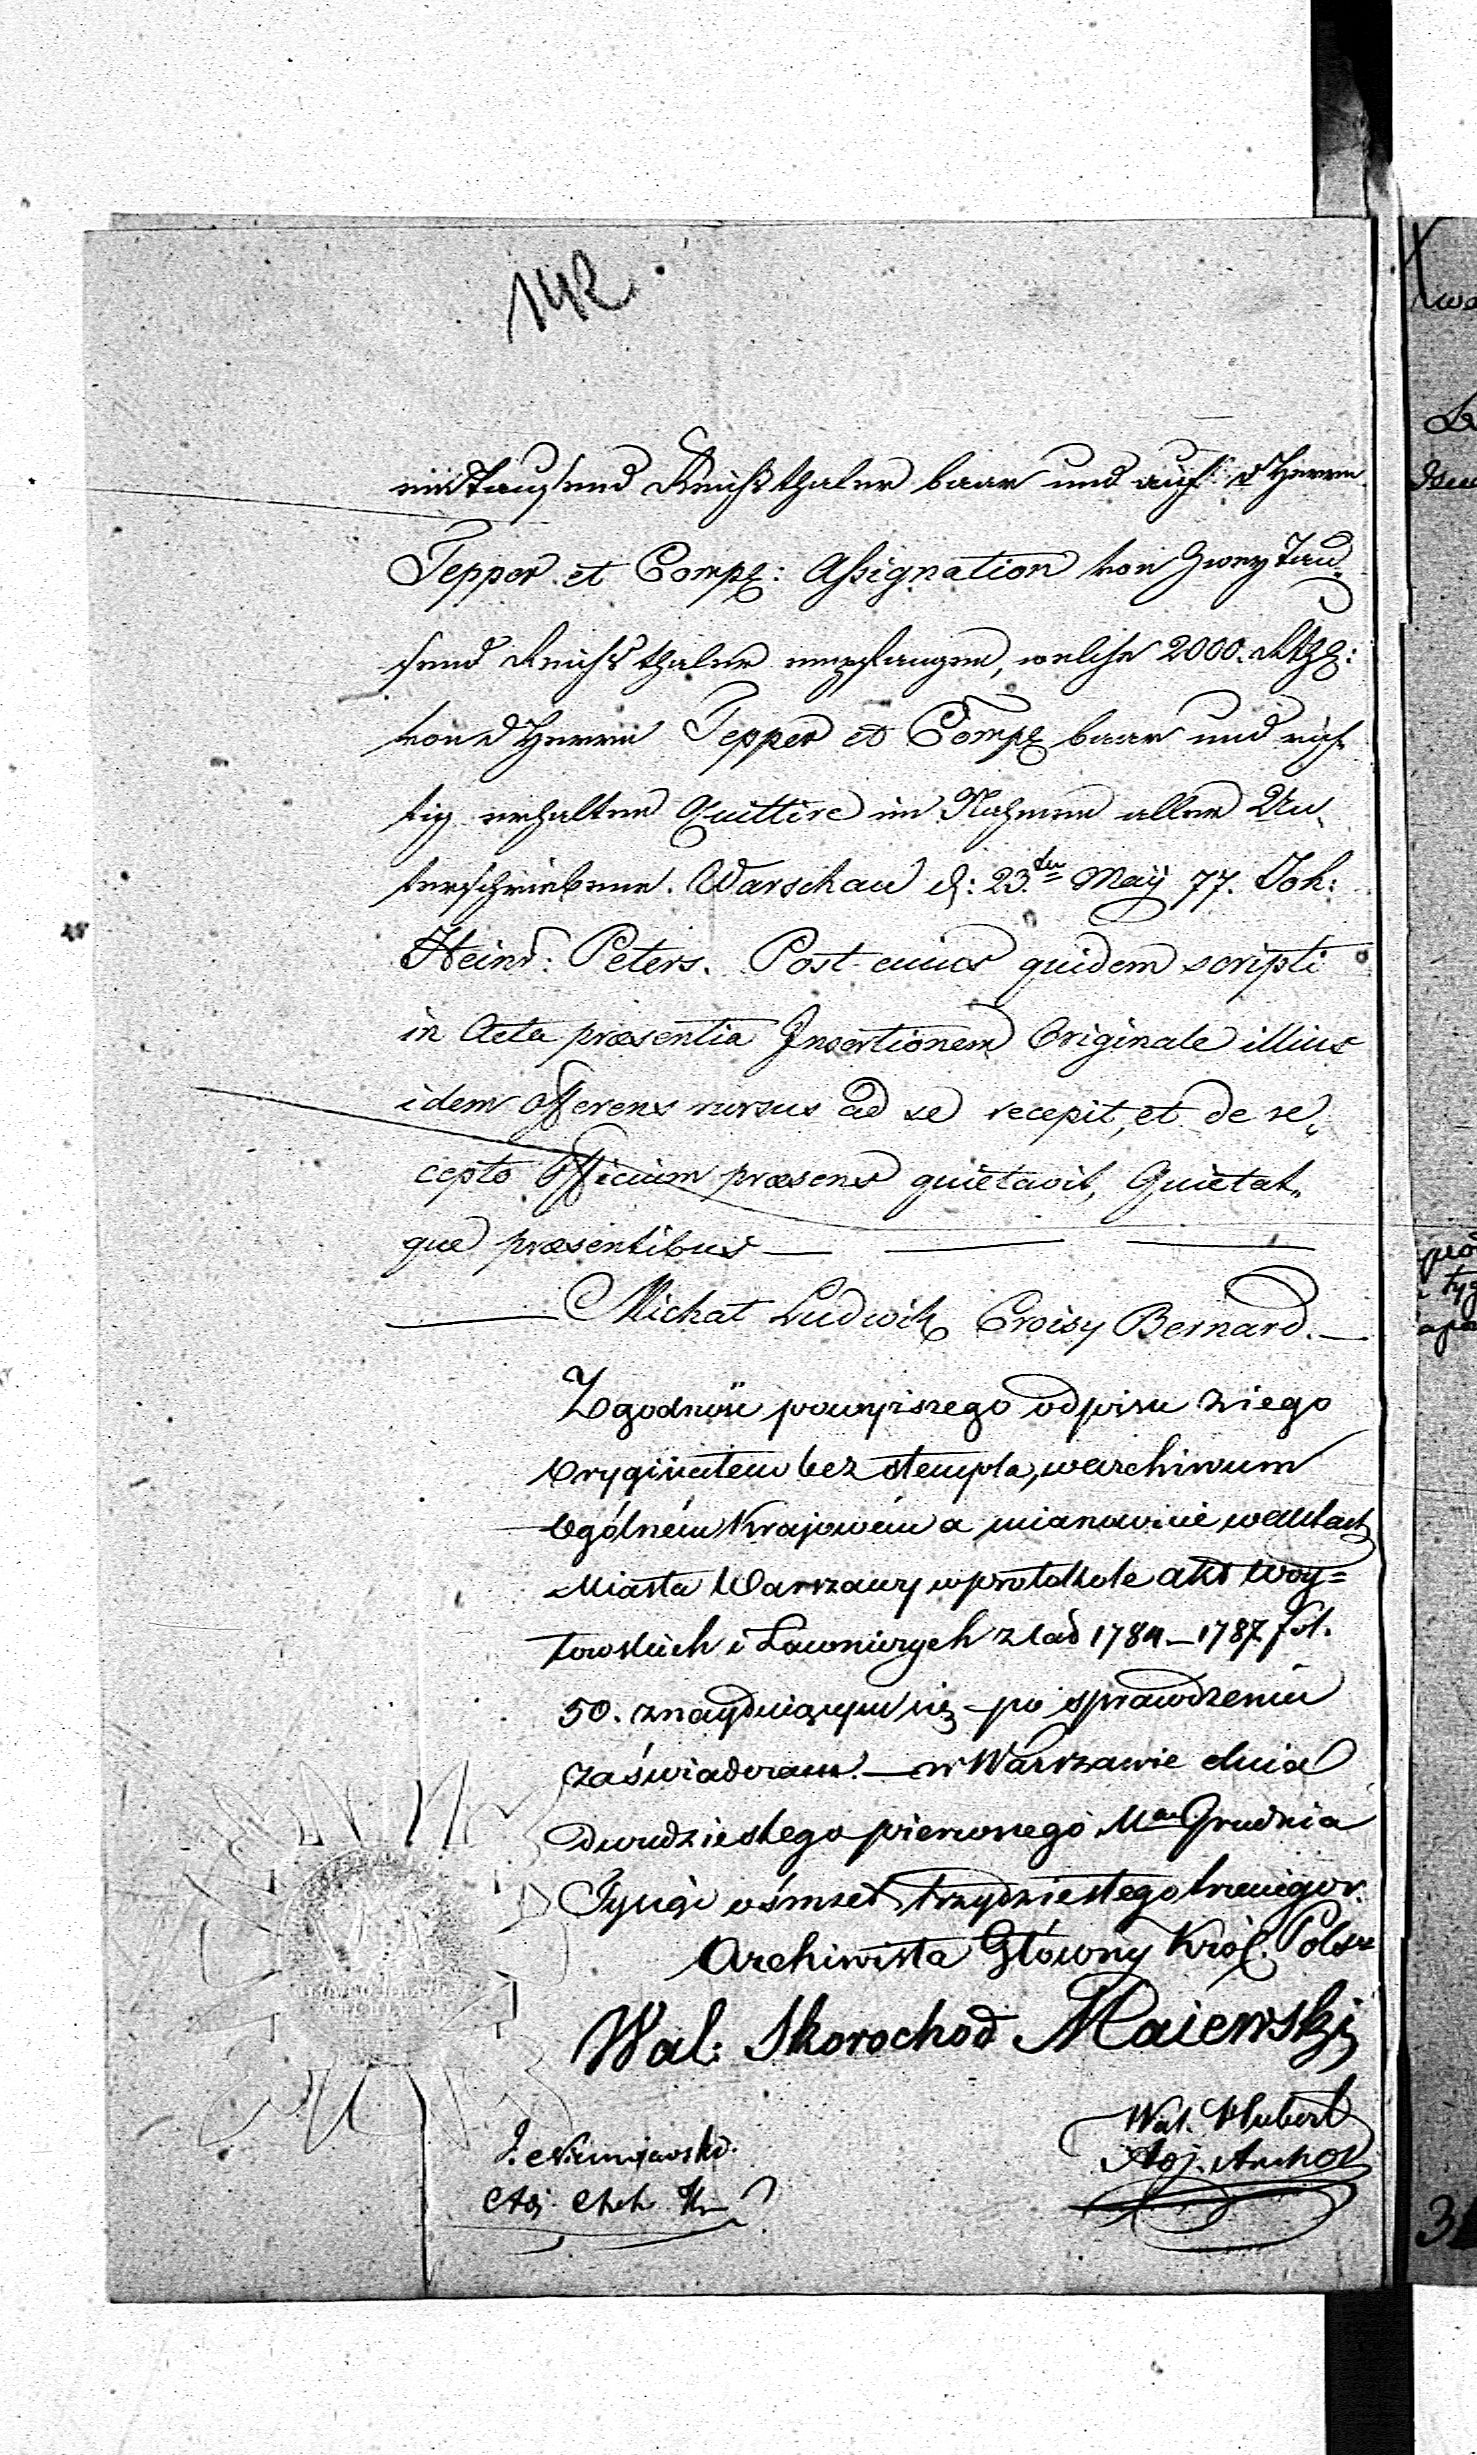 142.
ein Tausend Reichsthaler baar und auf d Herren
Tepper et Comp: Assignation von Zwey Tau„
send Reichsthaler empfangen, welche 2000. Rthl:
von d Herren Tepper et Comp baar und rich
tig erhalten Quittire im Nahmen aller Un„
terschriebene. Warschau d: 23ten May 77. Joh:
Heinr: Peters. Post cuius quidem scripti
in Acta præsentia Insertionem Originale illius
idem offerens rursus ad se recepit, et de re„
cepto Officium præsens quietavit, Quietat„
que præsentibus — — —
— Michał Ludwik Croisy Bernard. —
Zgodność powyższego odpisu z iego
Oryginałem bez stempla, w archiwum
Ogólném Krajowém a mianowicie w aktach
Miasta Warszawy w protokole akt Woy=
towskich i Ławniczych z lat 1784–1787. fol.
50. znayduiącym się – po sprawdzeniu
zaświadczam. — w Warszawie dnia
dwudziestego pierwszego Mca Grudnia
Tysiąc ośmset trzydziestego trzeciego r.
Archiwista Główny Król. Polsk
Wal: Skorochod Maiewski
Wal. Hubert
Adj. Arch
J.
Adj. Arch.